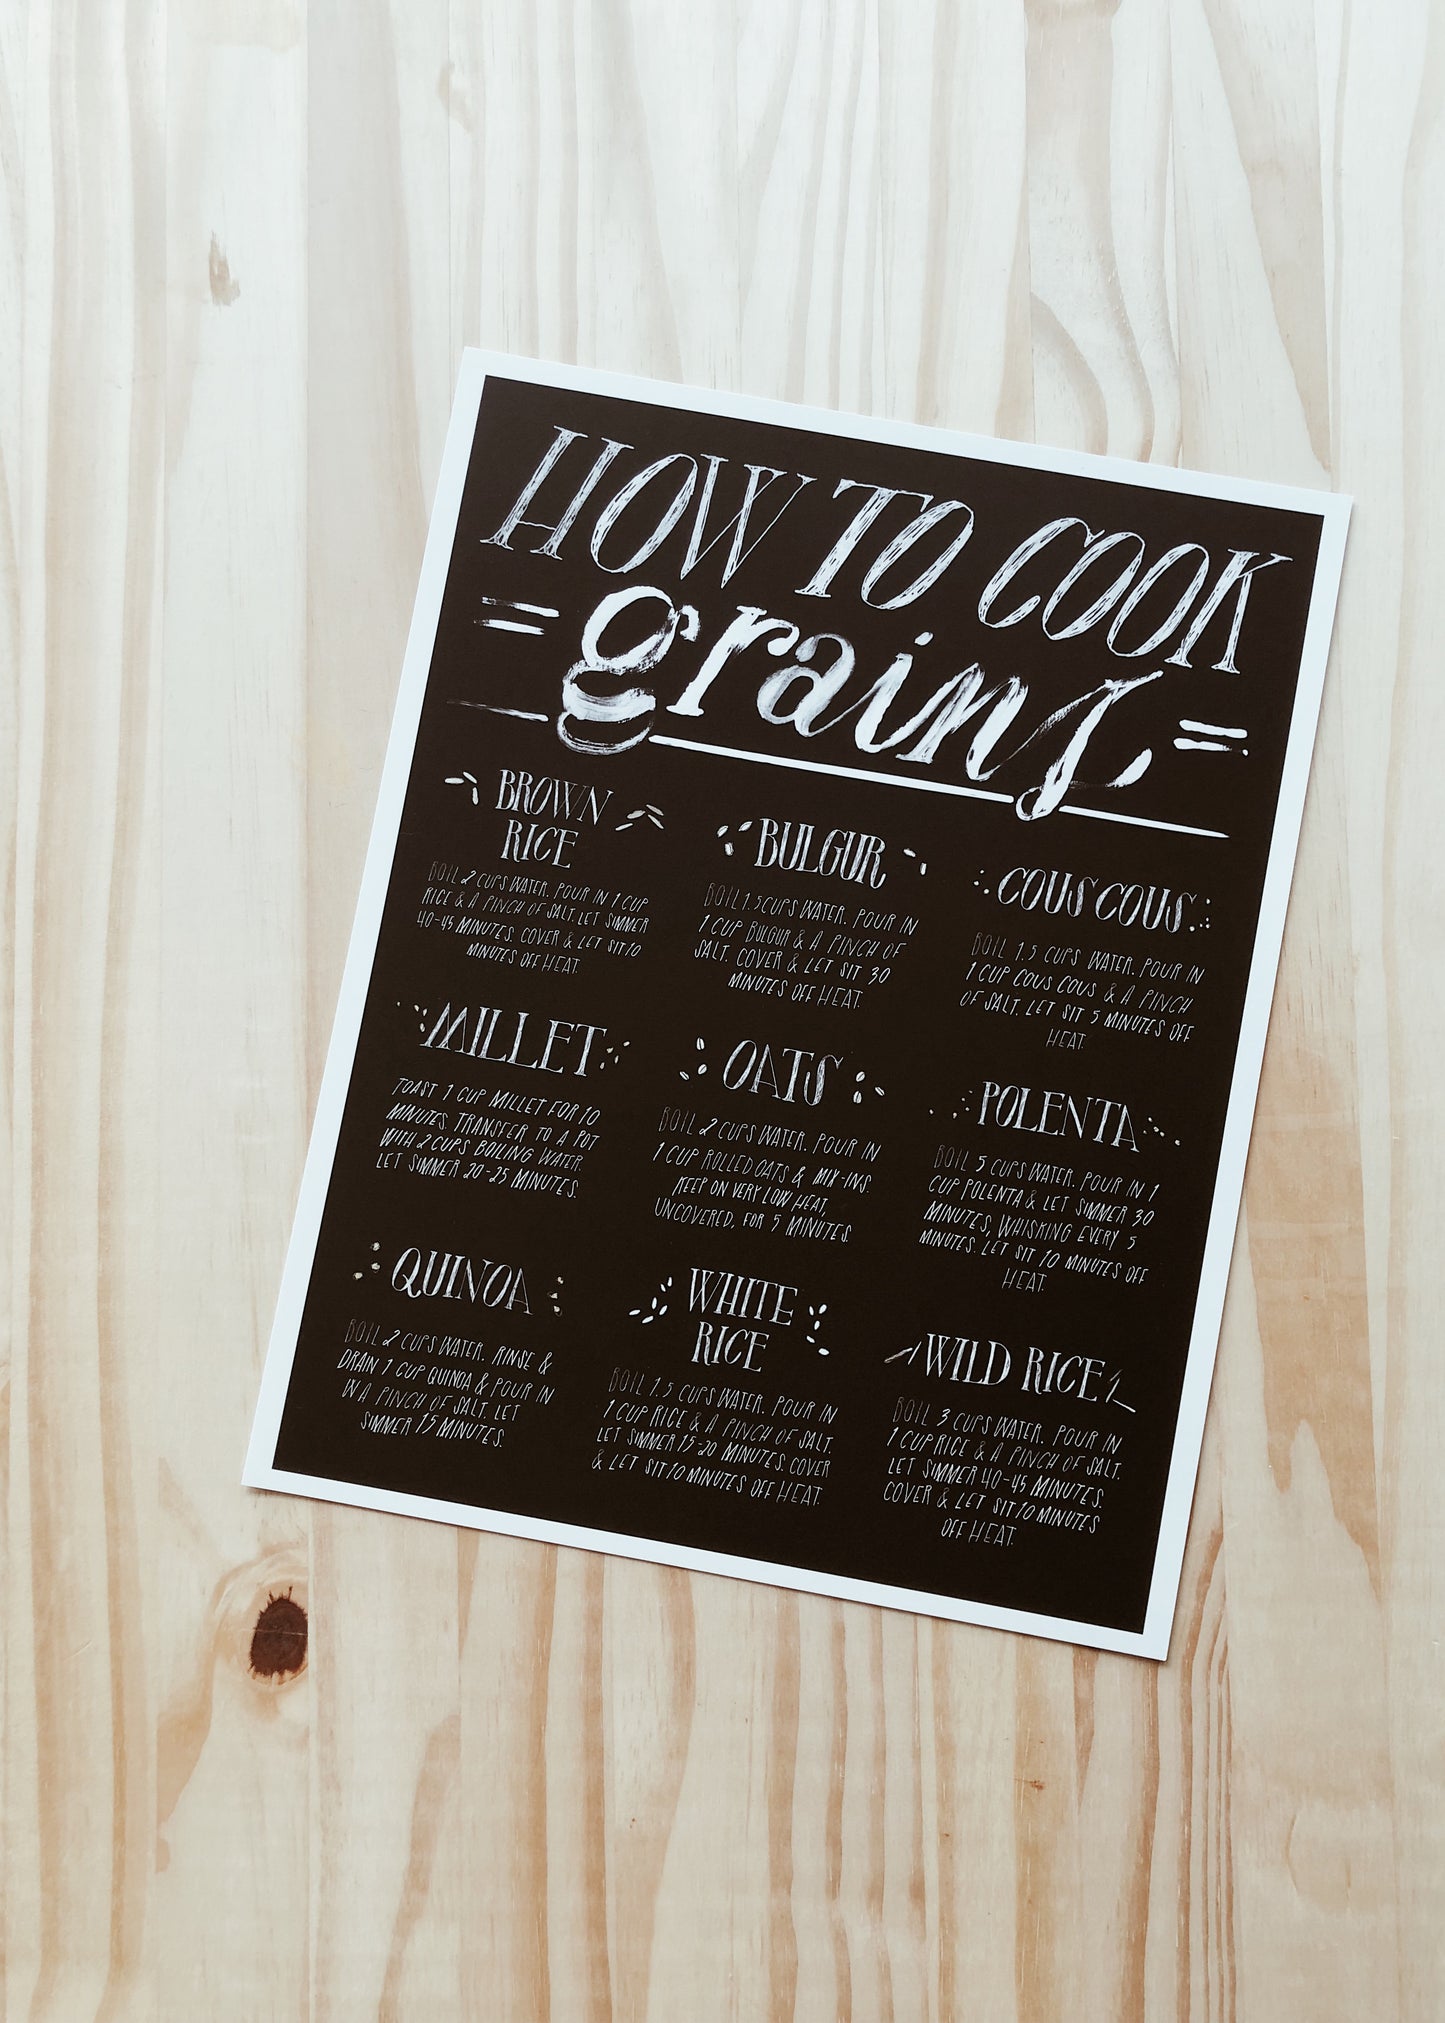 HOW TO COOK
grains
BROWN
RICE
BOIL 2 CUPS WATER. POUR IN 1 CUP
RICE & A PINCH OF SALT. LET SIMMER
40-45 MINUTES. COVER & LET SIT 10
MINUTES OFF HEAT.
BULGUR
BOIL 1.5 CUPS WATER. POUR IN
1 CUP BULGUR & A PINCH OF
SALT. COVER & LET SIT 30
MINUTES OFF HEAT.
COUS COUS
BOIL 1.5 CUPS WATER. POUR IN
1 CUP COUS COUS & A PINCH
OF SALT. LET SIT 5 MINUTES OFF
HEAT.
MILLET
TOAST 1 CUP MILLET FOR 10
MINUTES. TRANSFER TO A POT
WITH 2 CUPS BOILING WATER.
LET SIMMER 20-25 MINUTES.
OATS
BOIL 2 CUPS WATER. POUR IN
1 CUP ROLLED OATS & MIX-INS.
KEEP ON VERY LOW HEAT,
UNCOVERED, FOR 5 MINUTES.
POLENTA
BOIL 5 CUPS WATER. POUR IN 1
CUP POLENTA & LET SIMMER 30
MINUTES, WHISKING EVERY 5
MINUTES. LET SIT 10 MINUTES OFF
HEAT.
QUINOA
BOIL 2 CUPS WATER. RINSE &
DRAIN 1 CUP QUINOA & POUR IN
IN A PINCH OF SALT. LET
SIMMER 15 MINUTES.
WHITE
RICE
BOIL 1.5 CUPS WATER. POUR IN
1 CUP RICE & A PINCH OF SALT.
LET SIMMER 15-20 MINUTES. COVER
& LET SIT 10 MINUTES OFF HEAT.
WILD RICE
BOIL 3 CUPS WATER. POUR IN
1 CUP RICE & A PINCH OF SALT.
LET SIMMER 40-45 MINUTES.
COVER & LET SIT 10 MINUTES
OFF HEAT.